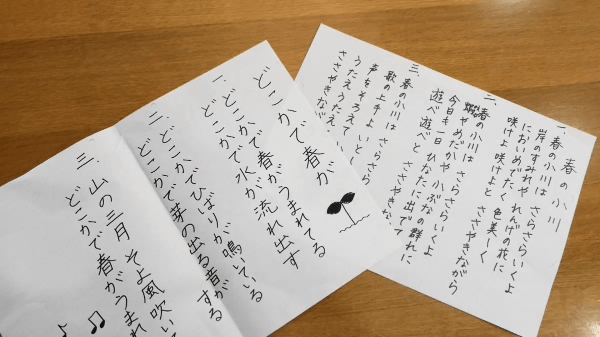 春の小川
一、春の小川は さらさらいくよ
岸のすみれや れんげの花に
においめでたく 色美しく
咲けよ咲けよと ささやきながら
二、春の小川は さらさらいくよ
やめだかや 小ぶなの群れに
今日も一日 ひなたに出でて
遊べ遊べと ささやきな
三、春の小川は さらさら
歌の上手よ いとし
声をそろえて
うたえうたえ
ささやきな
どこかで春が
一、どこかで春がうまれてる
どこかで水が流れ出す
二、どこかでひばりが鳴いている
どこかで芽の出る音がする
三、山の三月 そよ風吹い
どこかで春がうまれ